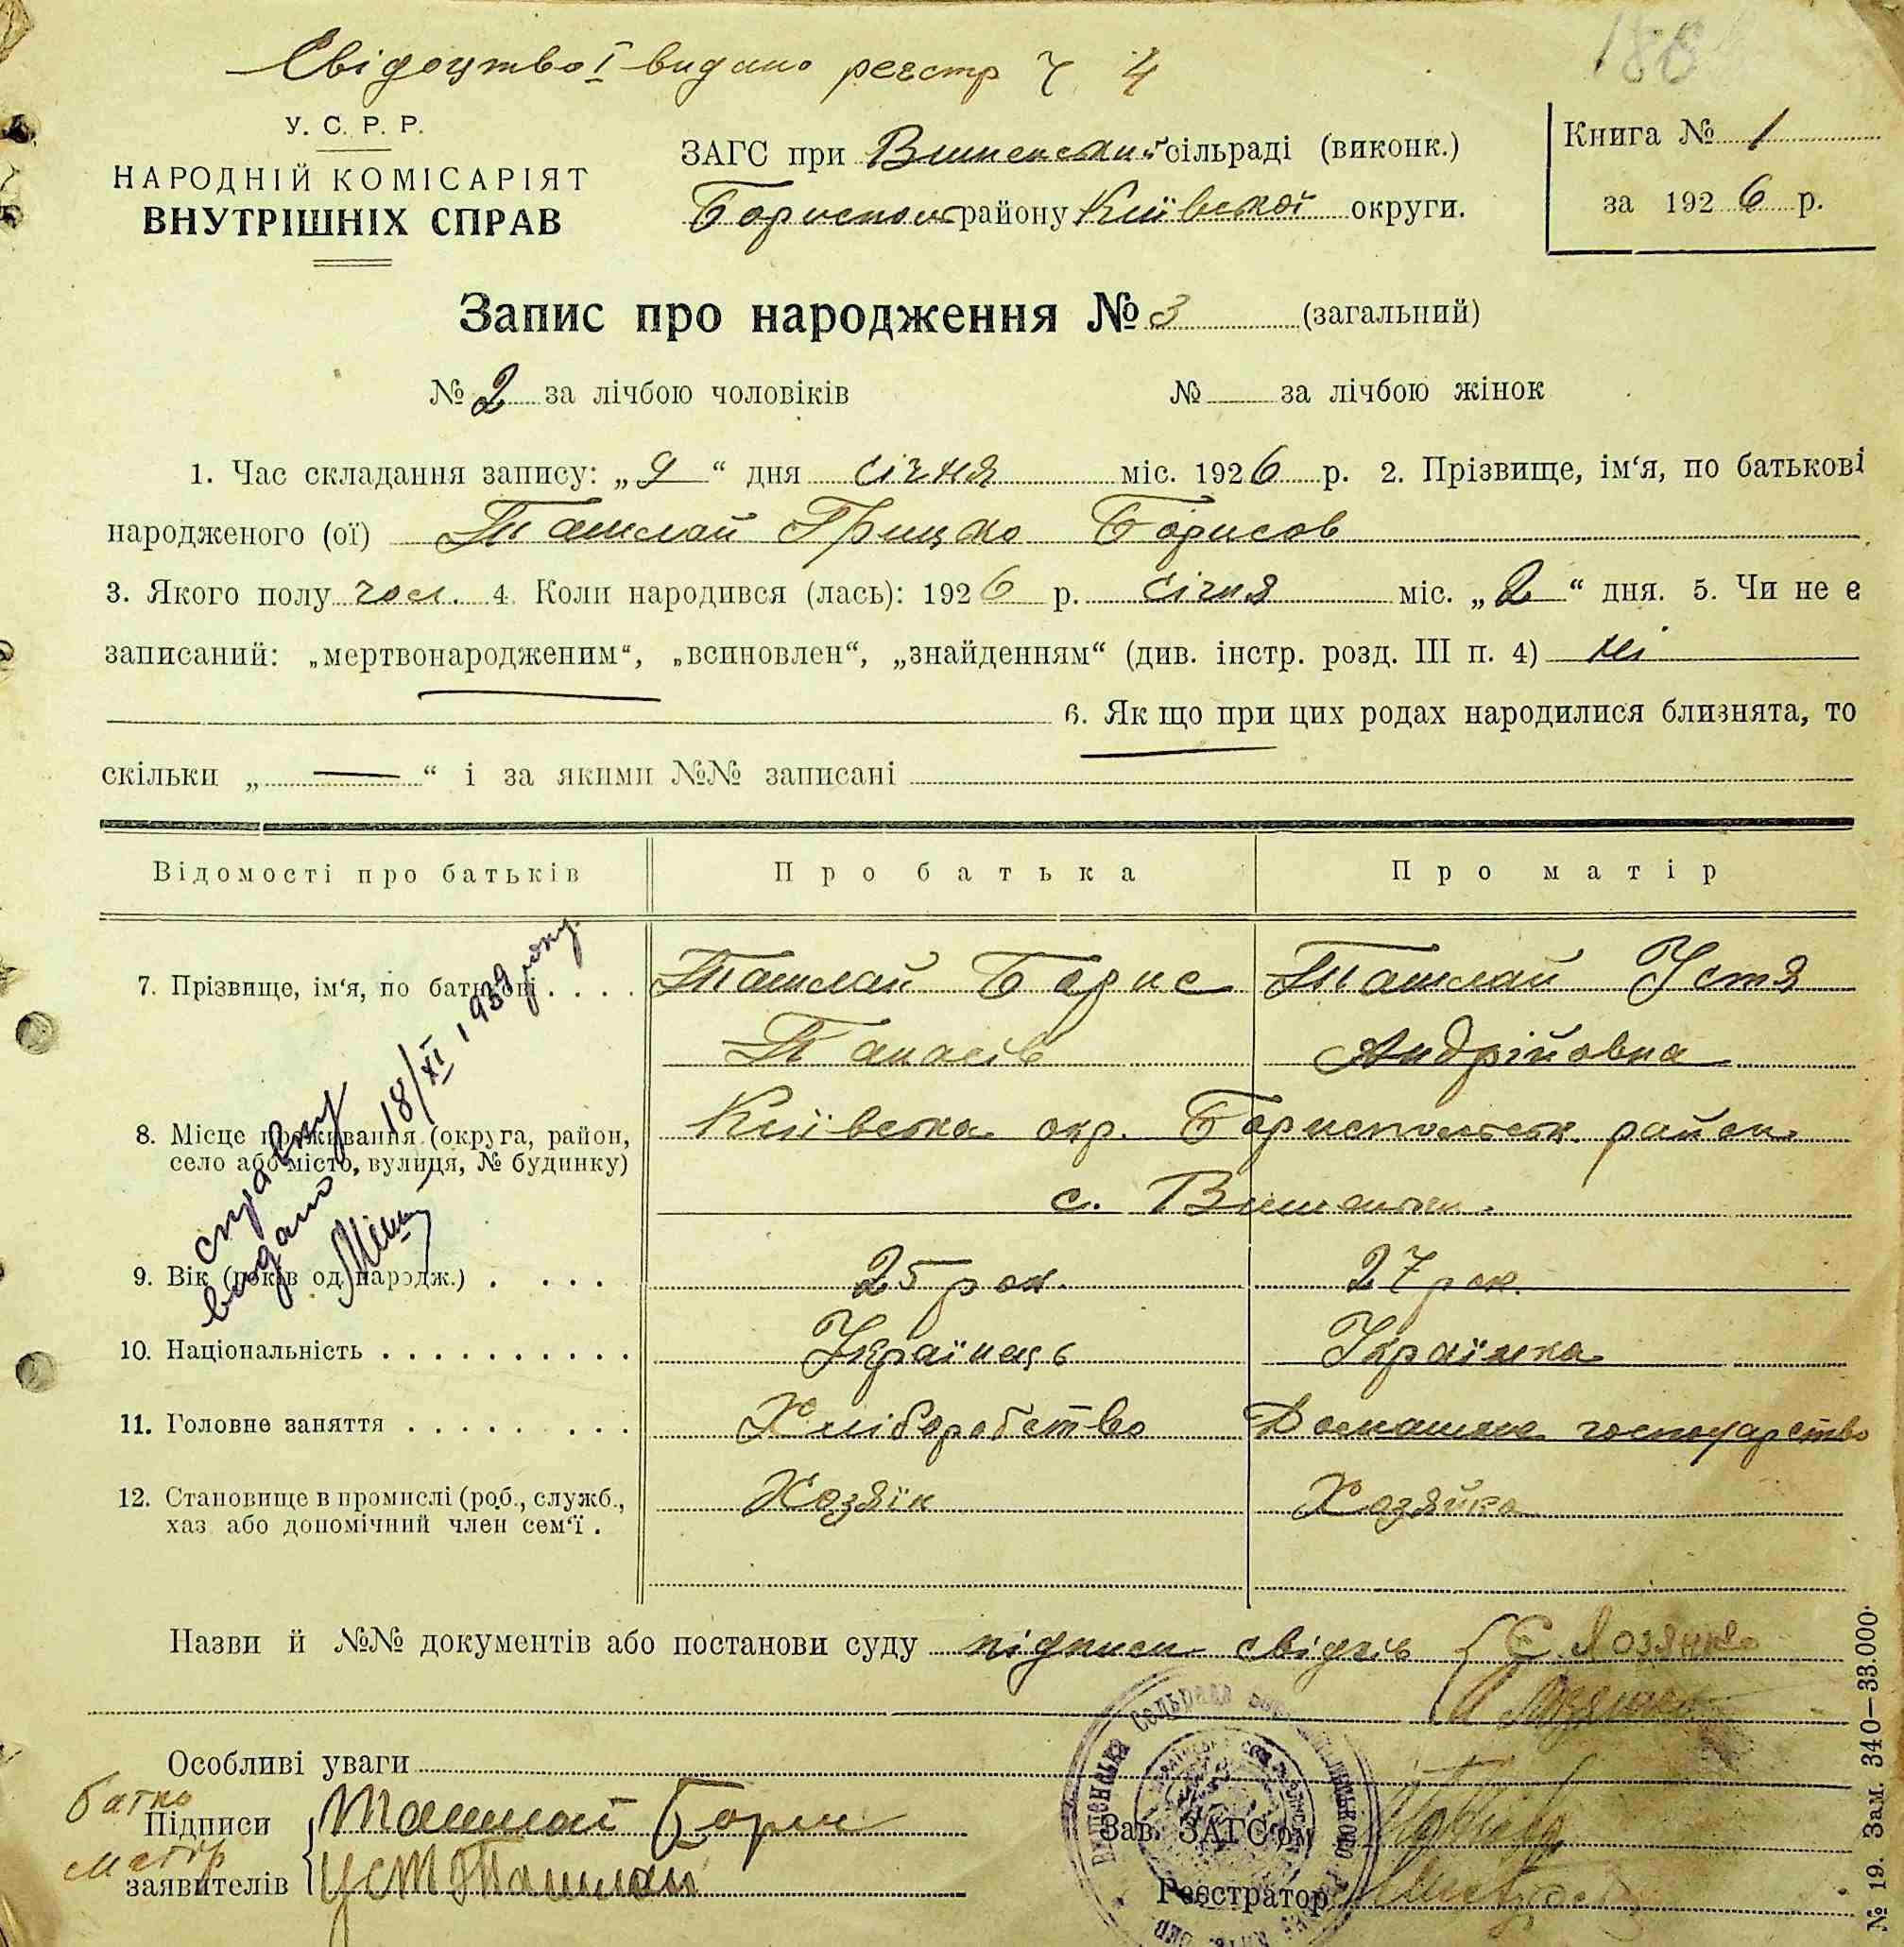 Свідоцтво І видано реєстр Ч 4
188
У. С. Р. Р.
НАРОДНІЙ КОМІСАРІЯТ
ВНУТРІШНІХ СПРАВ
ЗАГС при Вишенський сільраді (виконк.)
Бориспол району Київської округи.
Книга № 1
за 1926 р.
Запис про народження № 3 (загальний)
№ 2 за лічбою чоловіків № за лічбою жінок
1. Час складання запису: „9“ дня січня міс. 1926 р. 2. Прізвище, ім‘я, по батькові
народженого (ої) Ташлай Грицко Борисов
3. Якого полу чол. 4. Коли народився (лась): 1926 р. січня міс. „2“ дня. 5. Чи не є
записаний: „мертвонародженим“, „всиновлен“, „знайденням“ (див. інстр. розд. III п. 4) ні
6. Як що при цих родах народилися близнята, то
скільки „—“ і за якими №№ записані
Відомості про батьків Про батька Про матір
7. Прізвище, ім‘я, по батькові . . . . Ташлай Борис Ташлай Устя
Панасів Андрійовна
8. Місце проживання (округа, район, Київська окр. Бориспольськ. район
село або місто, вулиця, № будинку) с. Вишеньки.
справку
видано 18/XI 1939 року.
9. Вік (років од народж.) . . . . 25 рок. 27 рок.
10. Національність . . . . . . . . . . Українець Українка
11. Головне заняття . . . . . . . . Хліборобство Домашнє господарство
12. Становище в промислі (роб., служб., Хозяїн Хозяйка
хаз або допомічний член сем‘ї .
Назви й №№ документів або постанови суду підписи свідків Є. Лозянко
Особливі уваги
батко
Підписи Ташлай Борис
матір
заявителів Устя Ташлай
Зав. ЗАГС‘ом
Реєстратор
№ 19. Зам. 340—33.000.